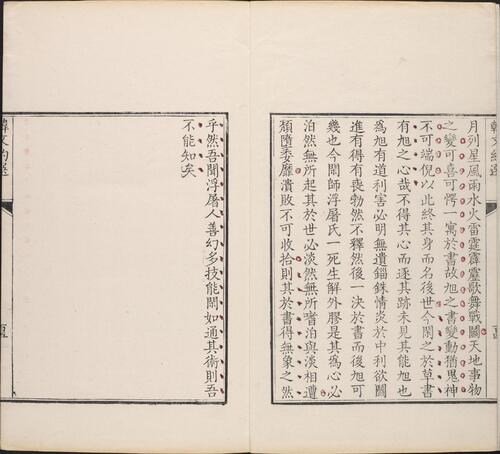 月列星風雨水火雷霆霹靂歌舞戰鬭天地事物
之變可喜可愕一寓於書故旭之書變動猶鬼神
不可端倪以此終其身而名後世今閑之於草書
有旭之心哉不得其心而逐其跡未見其能旭也
為旭有道利害必明無遺錙銖情炎於中利欲鬭
進有得有喪勃然不釋然後一決於書而後旭可
幾也今閑師浮屠氏一死生解外膠是其為心必
泊然無所起其於世必淡然無所嗜泊與淡相遭
頹墮委靡潰敗不可收拾則其於書得無象之然
乎然吾聞浮屠人善幻多技能閑如通其術則吾
不能知矣